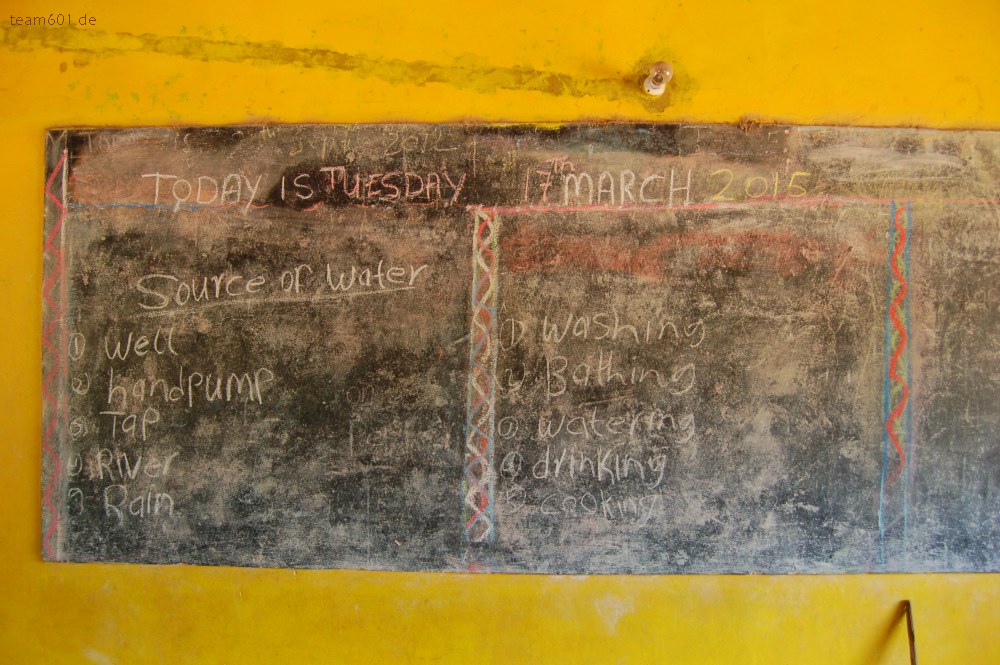 team601.de
2012
TODAY IS TUESDAY 17Th MARCH 2015
Source of water
① Well
② handpump
③ TAP
④ River
⑤ Rain
① washing
② Bathing
③ watering
④ drinking
⑤ cooking